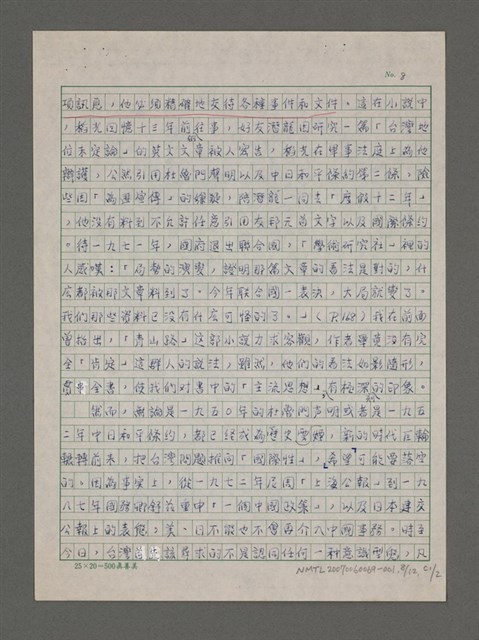 No. 9
項訊息,他必須精確地交待各種事件和文件。這在小說中
,楊光回憶十三年前往事,好友潛龍因研究一篇「台灣地
位未定論」的英文文章被人密告,楊光在軍事法庭上為他
辯護,公然引用杜魯門聲明以及中日和平條約第二條,險
些因「為匪宣傳」的嫌疑,陪潛龍一同去「度假十二年」
,他沒有料到不允許任意引用友邦元首文字以及國際條約
。待一九七一年,國府退出聯合國,「學術研究社」裡的
人感嘆:「局勢的演變,證明那篇文章的看法是對的,什
麼都被那文章料到了。今年聯合國一表決,大局就變了。
我們那些資料已沒有什麼可怕的了。」(P.168)我在前面
曾指出,「青山路」這部小說力求客觀,作者雖沒有完
全「肯定」這群人的說法,雖然,他們的看法如影隨形,
全書,使我們對書中的「主流思想」,有極深的印象。
然而,無論是一九五〇年的杜魯門聲明或者是一九五
二年中日和平條約,都已經成為歷史,新的時代在輪
轉轉前來,把台灣問題推向「國際性」,希望可能要落空
的。因為事實上,從一九七二年尼周「上海公報」到一九
八七年國務卿舒茲重申「一個中國政策」,以及日本建交
公報上的表態,美、日不能也不會再介入中國事務。時至
今日,台灣該尋求的不是認同任何一種意識型態,凡
25×20=500真善美
NMTL20090060069-001